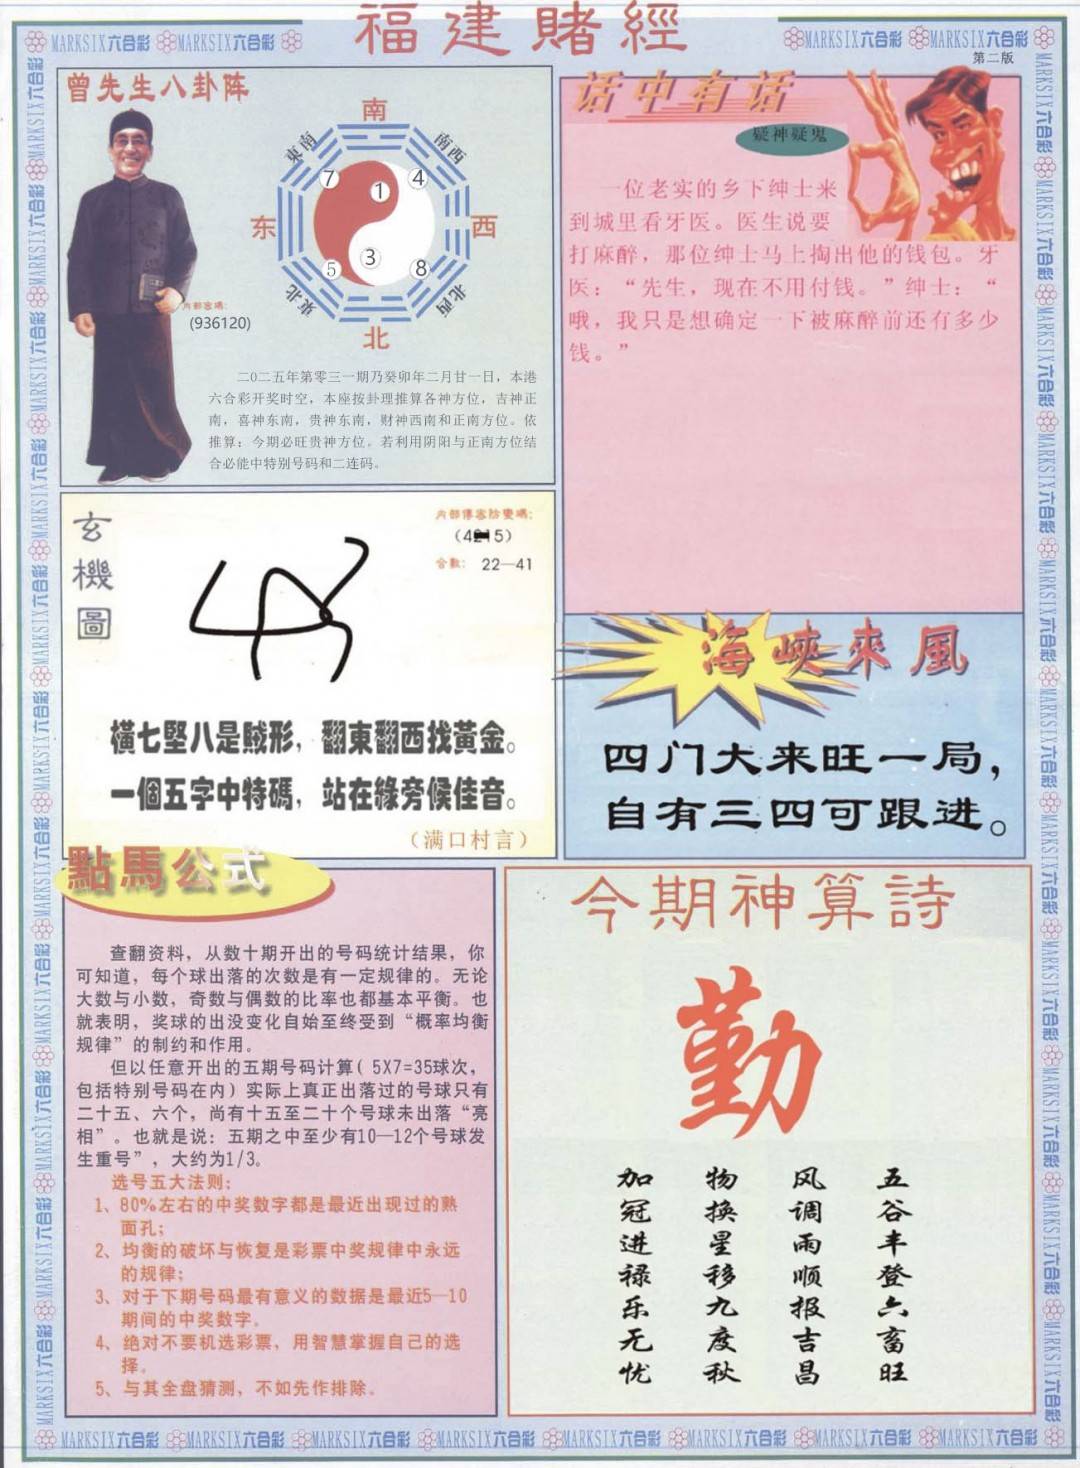 福建賭經
MARKSIX六合彩 MARKSIX六合彩 MARKSIX六合彩 MARKSIX六合彩
第二版
曾先生八卦阵
南
東南
南西
7
1
4
东
西
5
3
8
東北
北西
北
内部密碼:
(936120)
二〇二五年第零三一期乃癸卯年二月廿一日，本港
六合彩开奖时空，本座按卦理推算各神方位，吉神正
南，喜神东南，贵神东南，财神西南和正南方位。依
推算：今期必旺贵神方位。若利用阴阳与正南方位结
合必能中特别号码和二连码。
话中有话
疑神疑鬼
一位老实的乡下绅士来
到城里看牙医。医生说要
打麻醉，那位绅士马上掏出他的钱包。牙
医：“先生，现在不用付钱。”绅士：“
哦，我只是想确定一下被麻醉前还有多少
钱。”
玄機圖
内部傳密防變碼:
合數: 22—41
橫七堅八是賊形，翻東翻西找黃金。
一個五字中特碼，站在緣旁候佳音。
（满口村言）
海峽來風
四门大来旺一局，
自有三四可跟进。
點馬公式
查翻资料，从数十期开出的号码统计结果，你
可知道，每个球出落的次数是有一定规律的。无论
大数与小数，奇数与偶数的比率也都基本平衡。也
就表明，奖球的出没变化自始至终受到“概率均衡
规律”的制约和作用。
但以任意开出的五期号码计算( 5X7=35球次，
包括特别号码在内）实际上真正出落过的号球只有
二十五、六个，尚有十五至二十个号球未出落“亮
相”。也就是说：五期之中至少有10—12个号球发
生重号”，大约为1/3。
选号五大法则:
1、80%左右的中奖数字都是最近出现过的熟
面孔;
2、均衡的破坏与恢复是彩票中奖规律中永远
的规律;
3、对于下期号码最有意义的数据是最近5—10
期间的中奖数字。
4、绝对不要机选彩票，用智慧掌握自己的选
择。
5、与其全盘猜测，不如先作排除。
今期神算詩
勤
加冠进禄乐无忧
物换星移九度秋
风调雨顺报吉昌
五谷丰登六畜旺
MARKSIX六合彩 MARKSIX六合彩 MARKSIX六合彩 MARKSIX六合彩 MARKSIX六合彩 MARKSIX六合彩 MARKSIX六合彩 MARKSIX六合彩